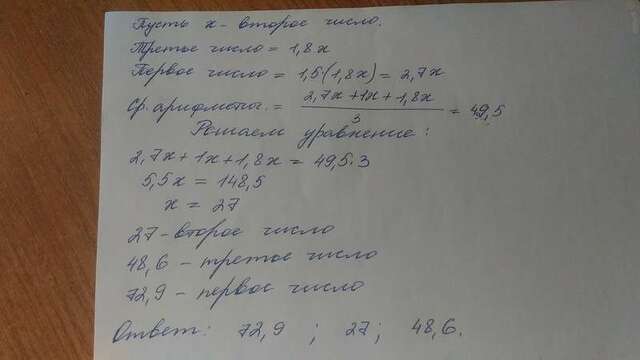 Пусть x - второе число.
Третье число = 1,8x
Первое число = 1,5(1,8x) = 2,7x
Ср. арифметич. = (2,7x+1x+1,8x)/3 = 49,5
Решаем уравнение:
2,7x+1x+1,8x = 49,5·3
5,5x = 148,5
x = 27
27 - второе число
48,6 - третье число
72,9 - первое число
Ответ: 72,9 ; 27 ; 48,6.